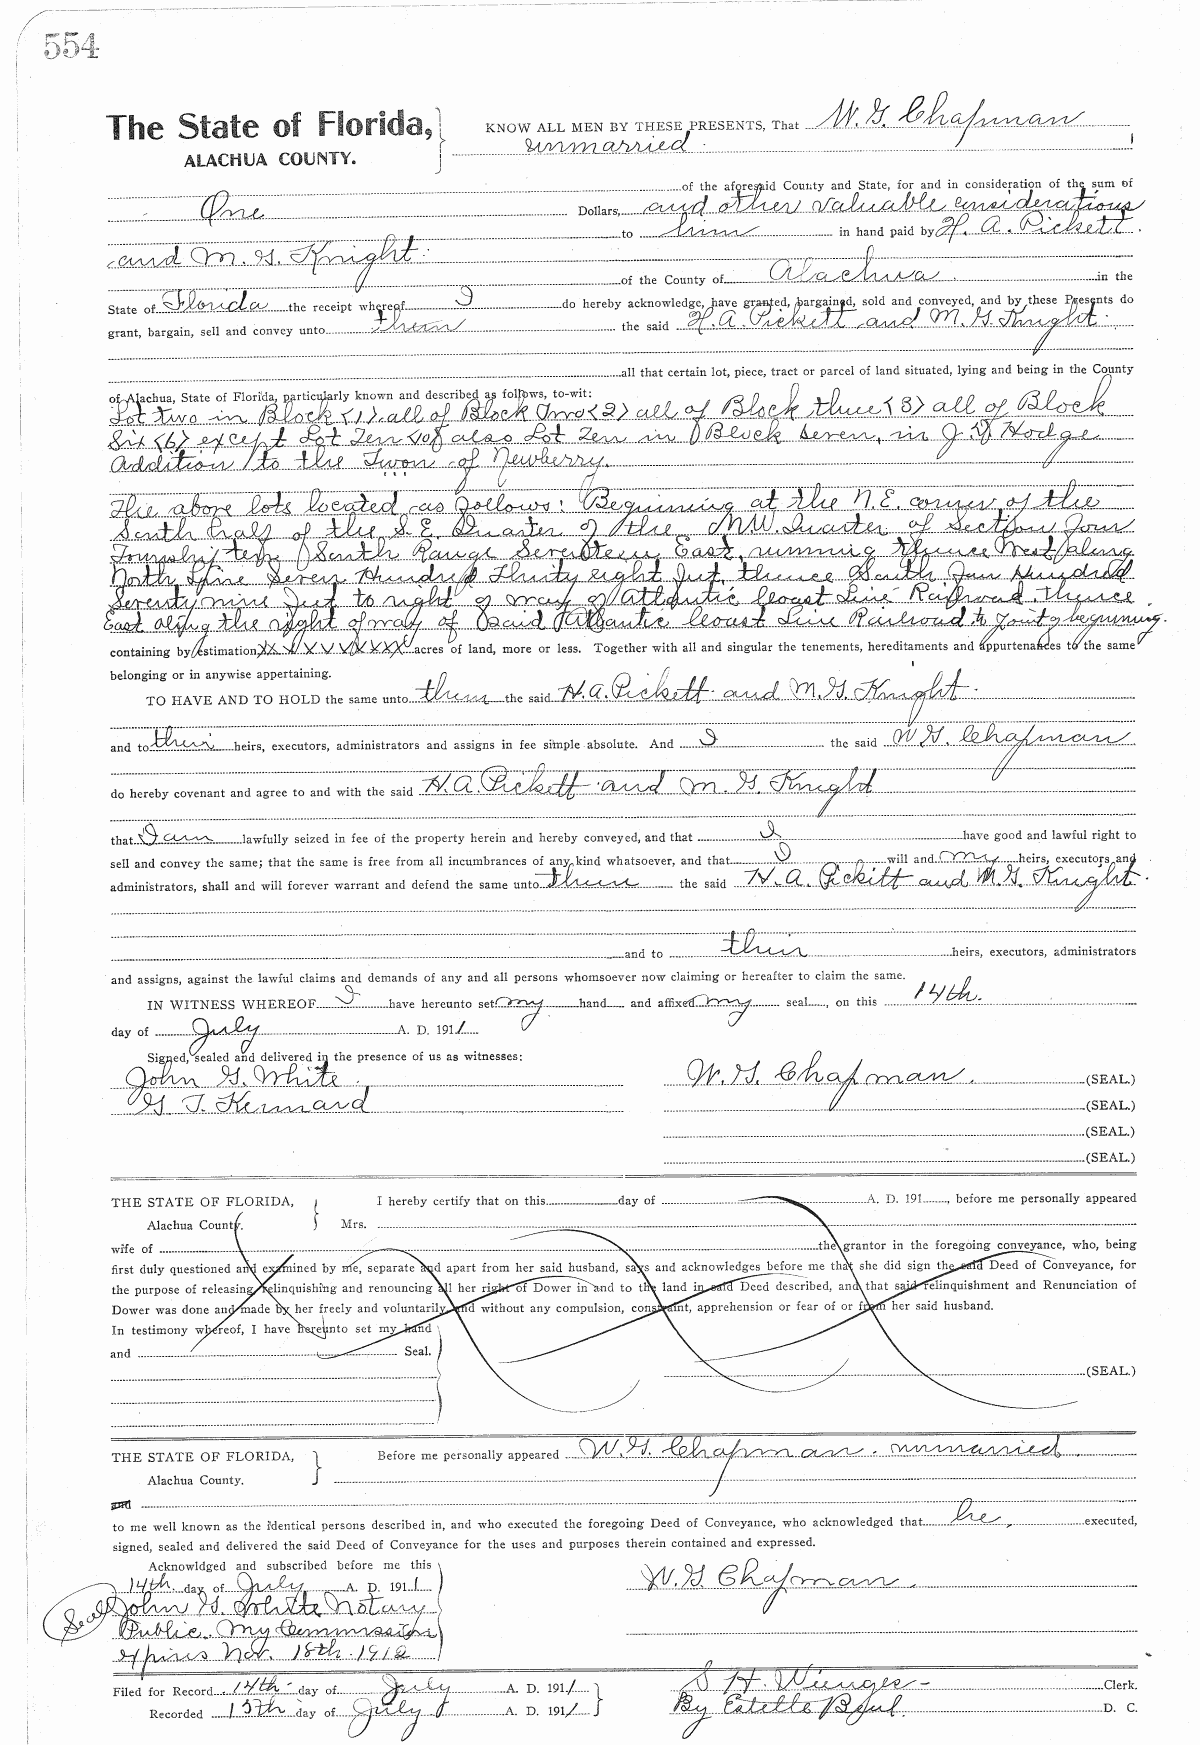 554
The State of Florida,
ALACHUA COUNTY.
KNOW ALL MEN BY THESE PRESENTS, That W. G. Chapman
unmarried
of the aforesaid County and State, for and in consideration of the sum of
One Dollars, and other valuable considerations
to him in hand paid by H. A. Pickett
and M. G. Knight
of the County of Alachua in the
State of Florida the receipt whereof I do hereby acknowledge, have granted, bargained, sold and conveyed, and by these Presents do
grant, bargain, sell and convey unto them the said H. A. Pickett and M. G. Knight
all that certain lot, piece, tract or parcel of land situated, lying and being in the County
of Alachua, State of Florida, particularly known and described as follows, to-wit:
Lot two in Block (1) all of Block Two (2) all of Block three (3) all of Block
Six (6) except Lot Ten (10) also Lot Ten in Block Seven, in J. Hodge
Addition to the Twon of Newberry.
The above lots located as follows: Beginning at the N.E. corner of the
South half of the S.E. Quarter of the N.W. Quarter of Section Four
Township ten South Range Seventeen East, running thence West along
North Line Seven Hundred Thirty eight feet, thence South Four Hundred
Seventy nine feet to right of way of Atlantic Coast Line Railroad thence
East along the right of way of said Atlantic Coast Line Railroad to point of beginning.
containing by estimation xx x x x x xxx acres of land, more or less. Together with all and singular the tenements, hereditaments and appurtenances to the same
belonging or in anywise appertaining.
TO HAVE AND TO HOLD the same unto them the said H. A. Pickett and M. G. Knight
and to their heirs, executors, administrators and assigns in fee simple absolute. And I the said W. G. Chapman
do hereby covenant and agree to and with the said H. A. Pickett and M. G. Knight
that I am lawfully seized in fee of the property herein and hereby conveyed, and that I have good and lawful right to
sell and convey the same; that the same is free from all incumbrances of any kind whatsoever, and that I will and my heirs, executors and
administrators, shall and will forever warrant and defend the same unto them the said H. A. Pickett and M. G. Knight
and to their heirs, executors, administrators
and assigns, against the lawful claims and demands of any and all persons whomsoever now claiming or hereafter to claim the same.
IN WITNESS WHEREOF I have hereunto set my hand and affixed my seal, on this 14th.
day of July A. D. 1911
Signed, sealed and delivered in the presence of us as witnesses:
John G. White W. G. Chapman. (SEAL.)
G T. Kennard (SEAL.)
(SEAL.)
(SEAL.)
THE STATE OF FLORIDA, I hereby certify that on this day of A. D. 191 , before me personally appeared
Alachua County. Mrs.
wife of the grantor in the foregoing conveyance, who, being
first duly questioned and examined by me, separate and apart from her said husband, says and acknowledges before me that she did sign the said Deed of Conveyance, for
the purpose of releasing, relinquishing and renouncing all her right of Dower in and to the land in said Deed described, and that said relinquishment and Renunciation of
Dower was done and made by her freely and voluntarily, and without any compulsion, constraint, apprehension or fear of or from her said husband.
In testimony whereof, I have hereunto set my hand
and Seal.
(SEAL.)
THE STATE OF FLORIDA, Before me personally appeared W. G. Chapman. unmarried
Alachua County.
and
to me well known as the identical persons described in, and who executed the foregoing Deed of Conveyance, who acknowledged that he, executed,
signed, sealed and delivered the said Deed of Conveyance for the uses and purposes therein contained and expressed.
Acknowldged and subscribed before me this
14th day of July A. D. 1911 W. G. Chapman.
Seal John G. White Notary
Public. My Commission
expires Nov. 18th. 1912
Filed for Record 14th day of July A. D. 1911 S H. Wienges Clerk.
Recorded 15th day of July A. D. 1911 By Estelle D. C.